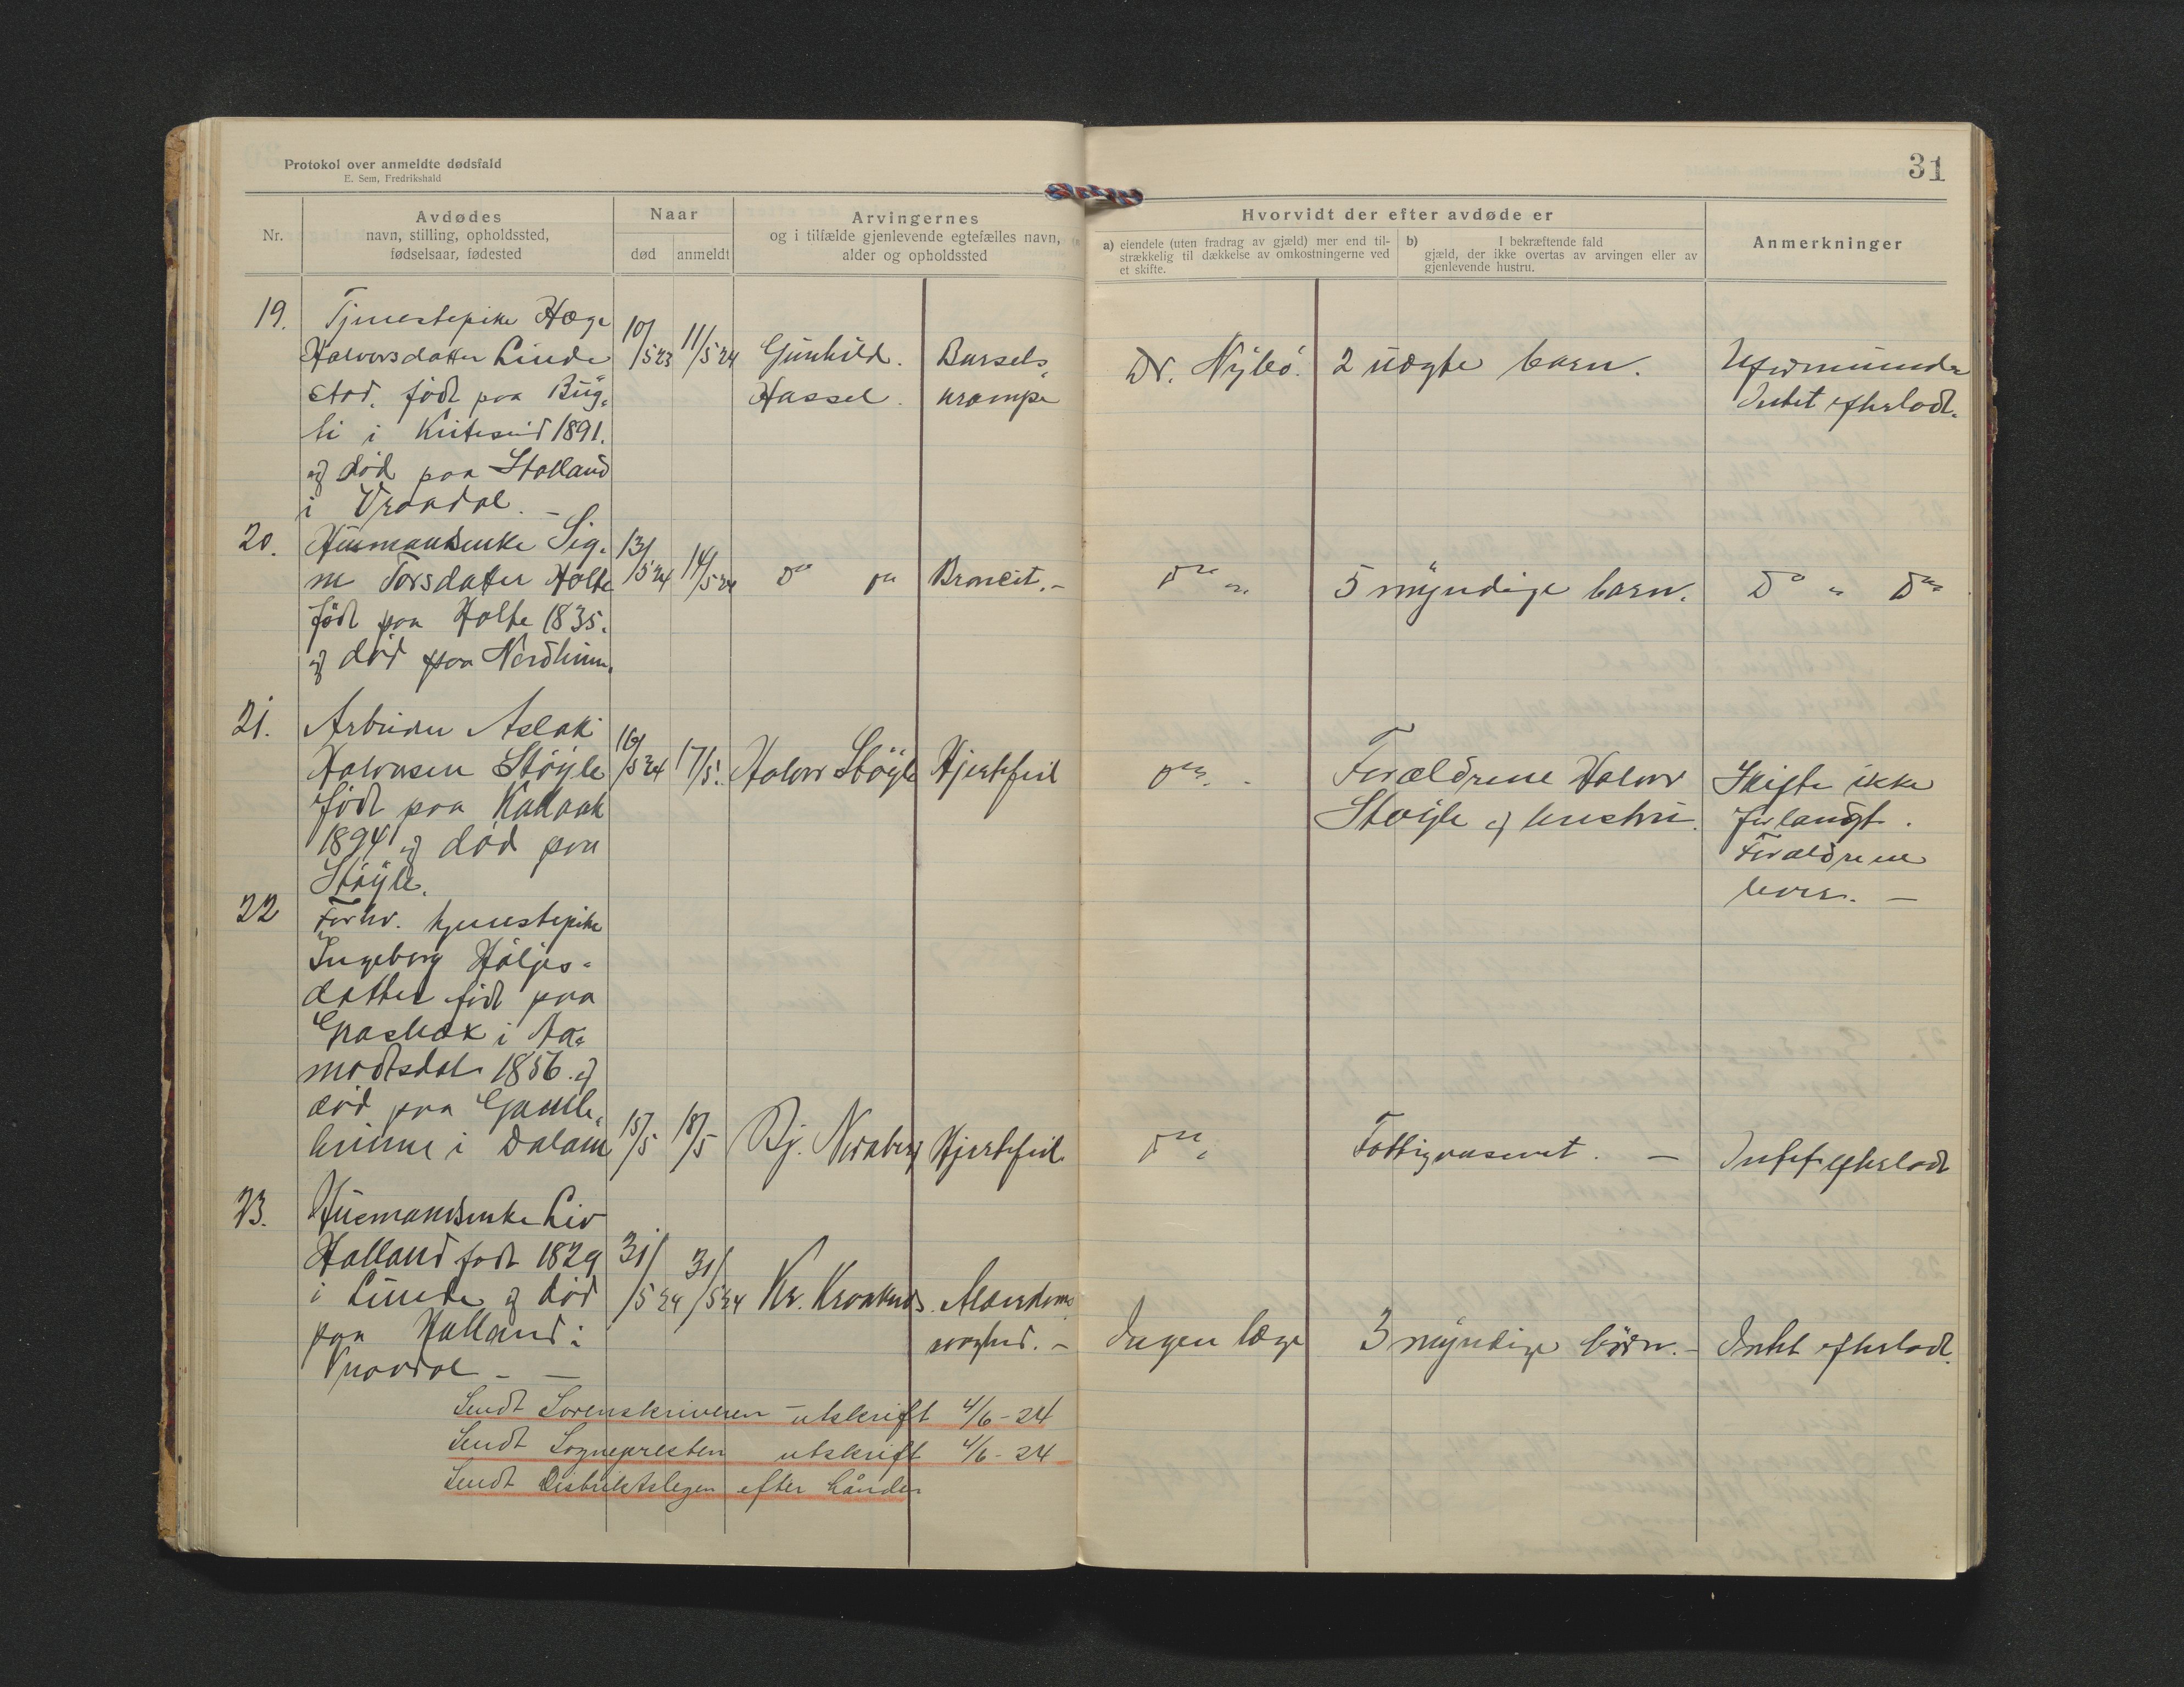 Protokol over anmeldte dødsfald
E. Sem, Fredrikshald
31
Nr.
Avdødes
navn, stilling, opholdssted,
fødselsaar, fødested
Naar
død
anmeldt
Arvingernes
og i tilfælde gjenlevende egtefælles navn,
alder og opholdssted
Hvorvidt der efter avdøde er
a) eiendele (uten fradrag av gjæld) mer end til-
strækkelig til dækkelse av omkostningerne ved
et skifte.
b) I bekræftende fald
gjæld, der ikke overtas av arvingen eller av
gjenlevende hustru.
Anmerkninger
19.
Tjenestepike Hæge
Halvorsdatter Linde
stad. født paa
li i 1891.
og død paa Stolland
i Vraadal. -
10/5 23
11/5 24
Gunhild.
Hassel.
Barsels
krampe
Dr. Nÿbö.
2 uægte barn.
Uformuende
Intet efterladt.
20.
Husmandsenke Sig.
ne Torsdatter Holte
født paa Holte 1835.
og død paa Nordheim.
13/5 24
14/5 24
Do
Broncit. -
Do
5 mÿndige barn.
Do " Do
21.
Arbeider Aslak
Halvorsen Støÿle
født paa
1894 og død paa
Støÿle.
16/5 24
17/5.
Halvor Støÿle
Hjertefeil
Do
Forældrene Halvor
Støÿle og hustru.
Skifte ikke
forlangt.
Forældrene
lever. -
22
Forhv. tjenestepike
Ingeborg Høljes-
datter født paa
i Aa-
modtsdal 1856. og
død paa Gamle-
i Dalane
15/5
18/5
Bj. Nordberg
Hjertefeil
Do
Fattigvæsenet. -
Intet efterladt
23.
Husmandsenke Liv
Halland født 1829
i Lunde og død
paa Halland i
Vraadal - -
31/5 24
31/5 24
Kr. Kroken
Alderdoms
svaghed. -
Ingen læge
3 mÿndige börn. -
Intet efterladt.
Sendt Sorenskriveren - utskrift 4/6 - 24
Sendt Sognepresten utskrift 4/6 - 24
Sendt Distriktslegen efter hånden